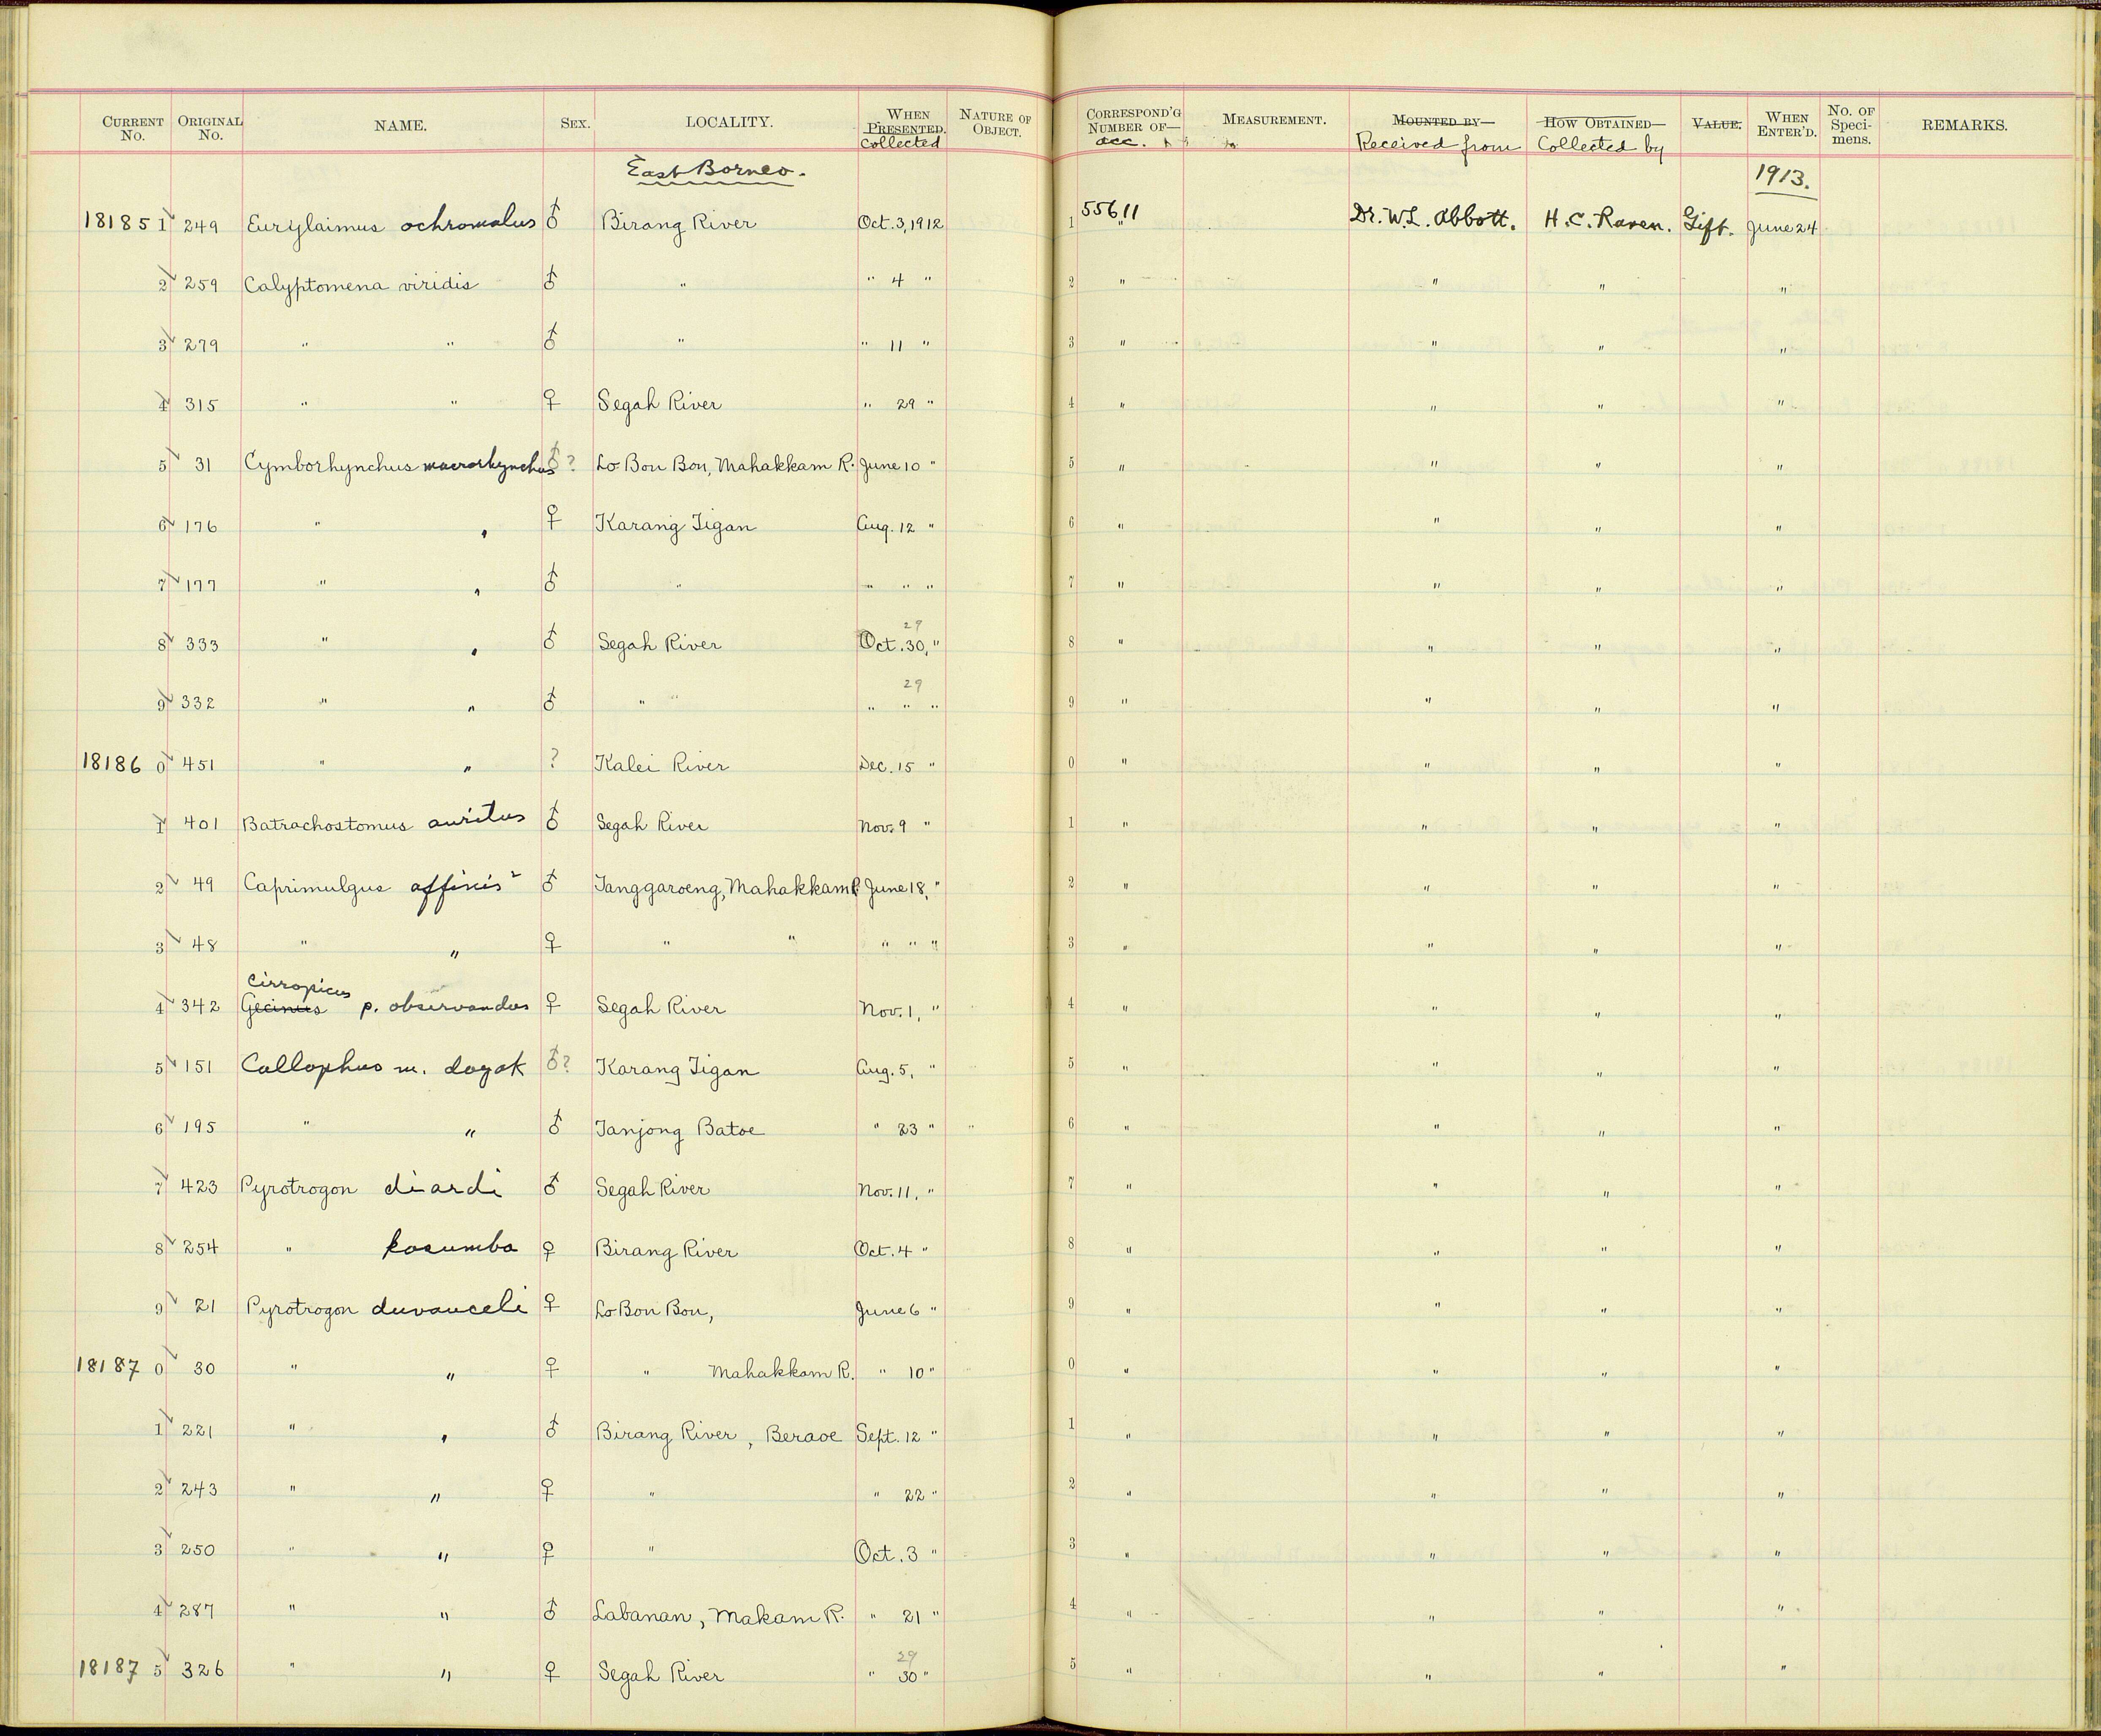 CURRENT No. ORIGINAL No. NAME. SEX. LOCALITY. WHEN PRESENTED. collected NATURE OF OBJECT. CORRESPOND'G NUMBER OF— acc. MEASUREMENT. MOUNTED BY— Received from HOW OBTAINED— Collected by VALUE. WHEN ENTER'D. No. OF Speci-mens. REMARKS.
East Borneo. 1913.
18185 1 249 Eurylaimus ochromalus ♂ Birang River Oct. 3, 1912 1 55611 " Dr. W. L. Abbott. H. C. Raven. Gift. June 24
2 259 Calyptomena viridis ♂ " " 4 " 2 " " " "
3 279 " " ♂ " " 11 " 3 " " " "
4 315 " " ♀ Segah River " 29 " 4 " " " "
5 31 Cymborhynchus macrorhynchus ♂? Lo Bon Bon, Mahakkam R. June 10 " 5 " " " "
6 176 " " ♀ Karang Tigan Aug. 12 " 6 " " " "
7 177 " " ♂ " " " " 7 " " " "
29
8 333 " " ♂ Segah River Oct. 30, " 8 " " " "
29
9 332 " " ♂ " " " " " 9 " " " "
18186 0 451 " " ? Kalei River Dec. 15 " 0 " " " "
1 401 Batrachostomus auritus ♂ Segah River Nov. 9 " 1 " " " "
2 49 Caprimulgus affinis ♂ Tanggaroeng, Mahakkam R. June 18, " 2 " " " "
3 48 " " ♀ " " " " " 3 " " " "
Cirropicus
4 342 Gecinus p. observandus ♀ Segah River Nov. 1, " 4 " " " "
5 151 Callophus m. dayak ♂? Karang Tigan Aug. 5, " 5 " " " "
6 195 " " ♂ Tanjong Batoe " 23 " 6 " " " "
7 423 Pyrotrogon diardi ♂ Segah River Nov. 11, " 7 " " " "
8 254 " kasumba ♀ Birang River Oct. 4 " 8 " " " "
9 21 Pyrotrogon duvauceli ♀ Lo Bon Bon, June 6 " 9 " " " "
18187 0 30 " " ♀ " Mahakkam R. " 10 " 0 " " " "
1 221 " " ♂ Birang River, Beraoe Sept. 12 " 1 " " " "
2 243 " " ♀ " " 22 " 2 " " " "
3 250 " " ♀ " Oct. 3 " 3 " " " "
4 287 " " ♂ Labanan, Makam R. " 21 " 4 " " " "
29
18187 5 326 " " ♀ Segah River " 30 " 5 " " " "